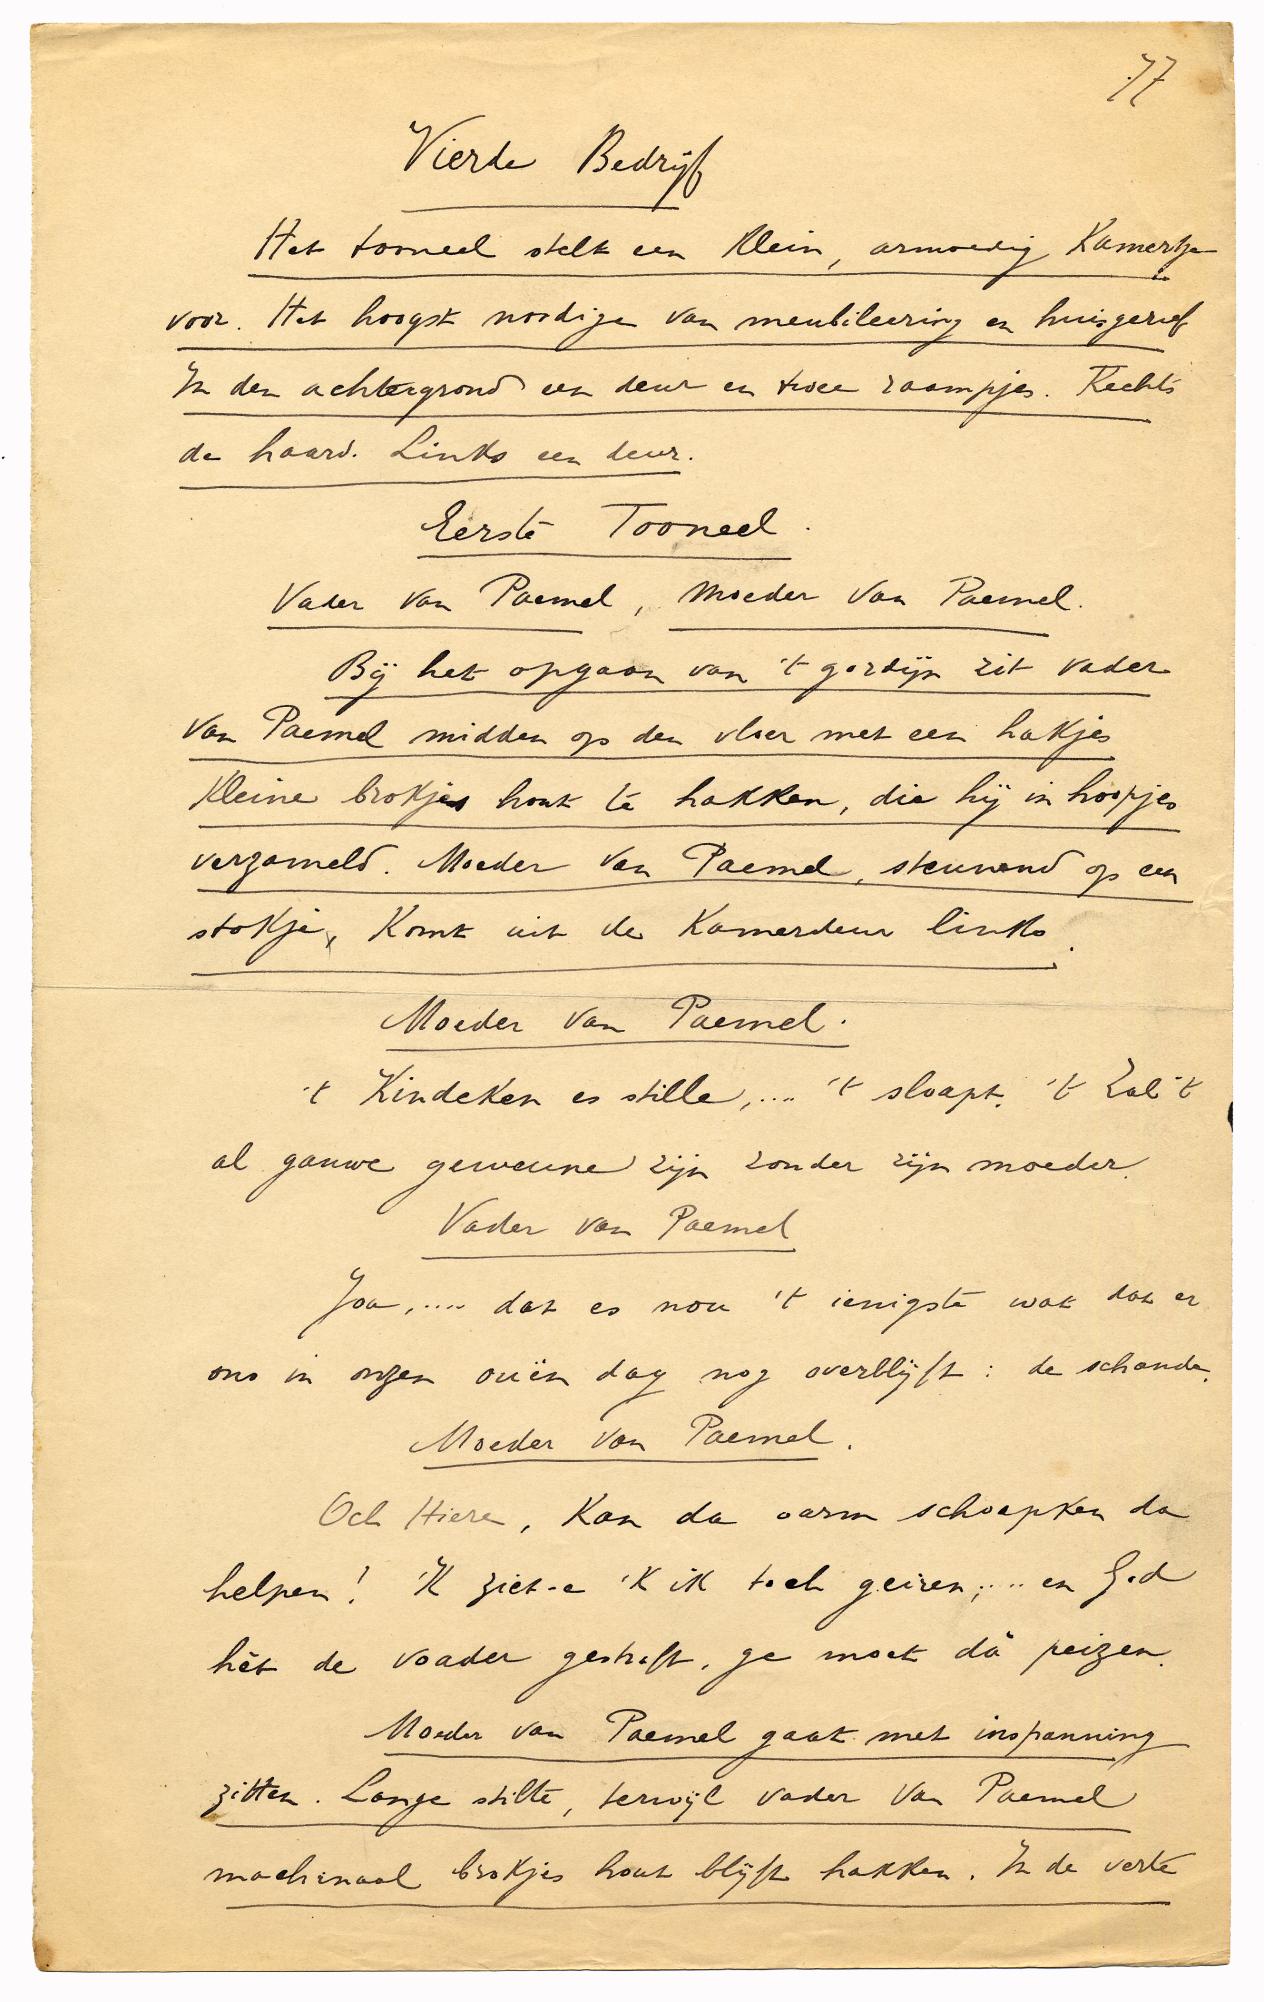 77
Vierde Bedrijf
Het tooneel stelt een klein, armoedig kamertje
voor. Het hoogst noodige van meubileering en huisgerief
In den achtergrond een deur en twee raampjes. Rechts
de haard. Links een deur.
Eerste Tooneel.
Vader van Paemel, Moeder van Paemel.
Bij het opgaan van 't gordijn zit vader
van Paemel midden op den vloer met een hakjes
kleine brokjes hout te hakken, die hij in hoopjes
verzameld. Moeder van Paemel, steunend op een
stokje, komt uit de kamerdeur links.
Moeder van Paemel.
't Kindeken es stille,.... 't sloapt. 't Zal 't
al gauwe geweune zijn zonder zijn moeder.
Vader van Paemel
Joa,.... dat es nou 't ienigste wat dat er
ons in onzen ouën dag nog overblijft: de schande.
Moeder van Paemel.
Och Hiere, kan da oarm schoapken da
helpen! 'K ziet-e 'k ik toch geiren;.... en God
hêt de voader gestraft, ge moet dà peizen.
Moeder van Paemel gaat met inspanning
zitten. Lange stilte, terwijl vader van Paemel
machinaal brokjes hout blijft hakken. In de verte